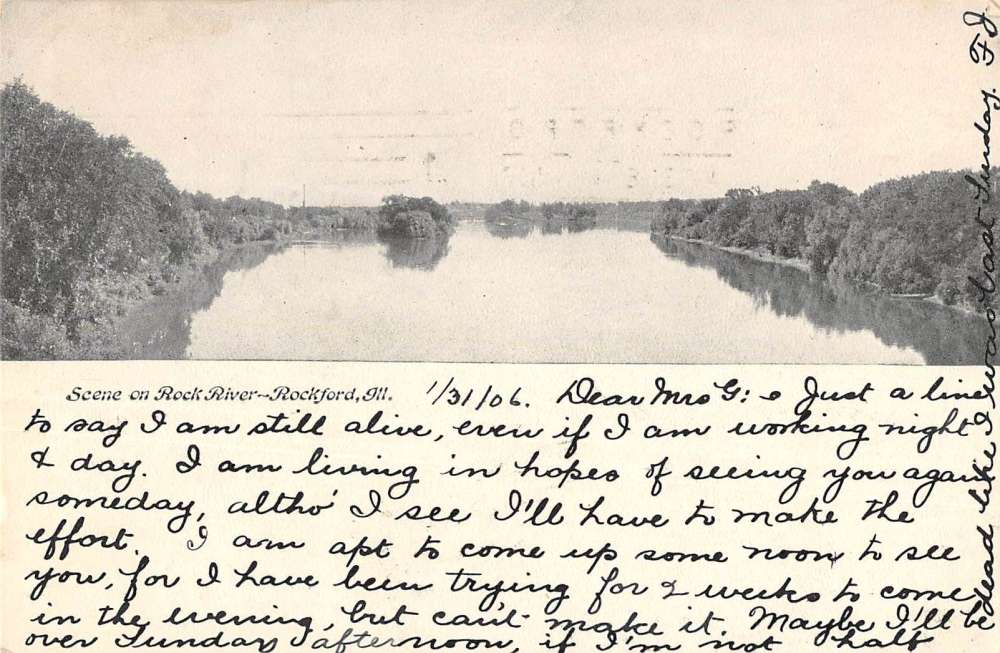 Scene on Rock River—Rockford, Ill.
1/31/06. Dear Mrs G:- Just a line
to say I am still alive, even if I am working night
& day. I am living in hopes of seeing you again
someday, altho' I see I'll have to make the
effort. I am apt to come up some noon to see
you, for I have been trying for 2 weeks to come
in the evening, but can't make it. Maybe I'll be
over Sunday afternoon, if I'm not half
dead like I was last Sunday. FJ